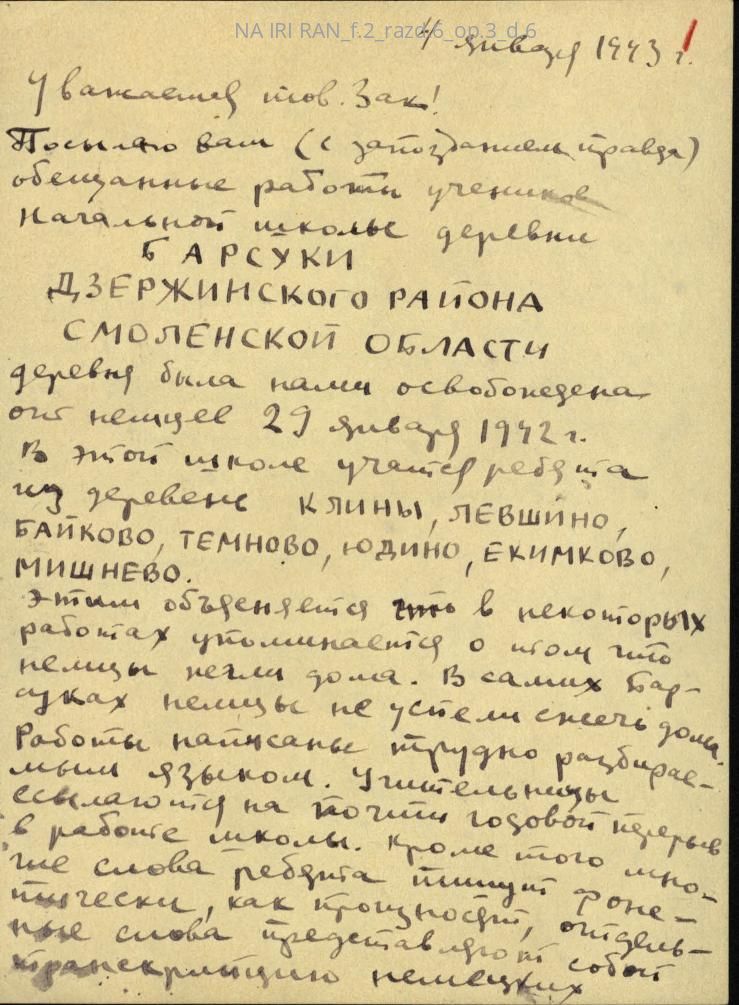 NA IRI RAN_f.2_razd.6_op.3_d.6
4 января 1943 г.
Уважаемый тов. Зак!
Посылаю вам (с запозданием, правда)
обещанные работы учеников
начальной школы деревни
БАРСУКИ
ДЗЕРЖИНСКОГО РАЙОНА
СМОЛЕНСКОЙ ОБЛАСТИ
деревня была нами освобождена
от немцев 29 января 1942 г.
В этой школе учатся ребята
из деревень КЛИНЫ, ЛЕВШИНО,
БАЙКОВО, ТЕМНОВО, ЮДИНО, ЕКИМКОВО,
МИШНЕВО.
Этим объясняется что в некоторых
работах упоминается о том что
немцы жгли дома. В самих Бар-
суках немцы не успели сжечь дома.
Работы написаны трудно разбирае-
мым языком. Учительницы
ссылаются на почти годовой перерыв
в работе школы. Кроме того мно-
гие слова ребята пишут фоне-
тически, как произносят, отдель-
ные слова представляют собой
транскрипцию немецких